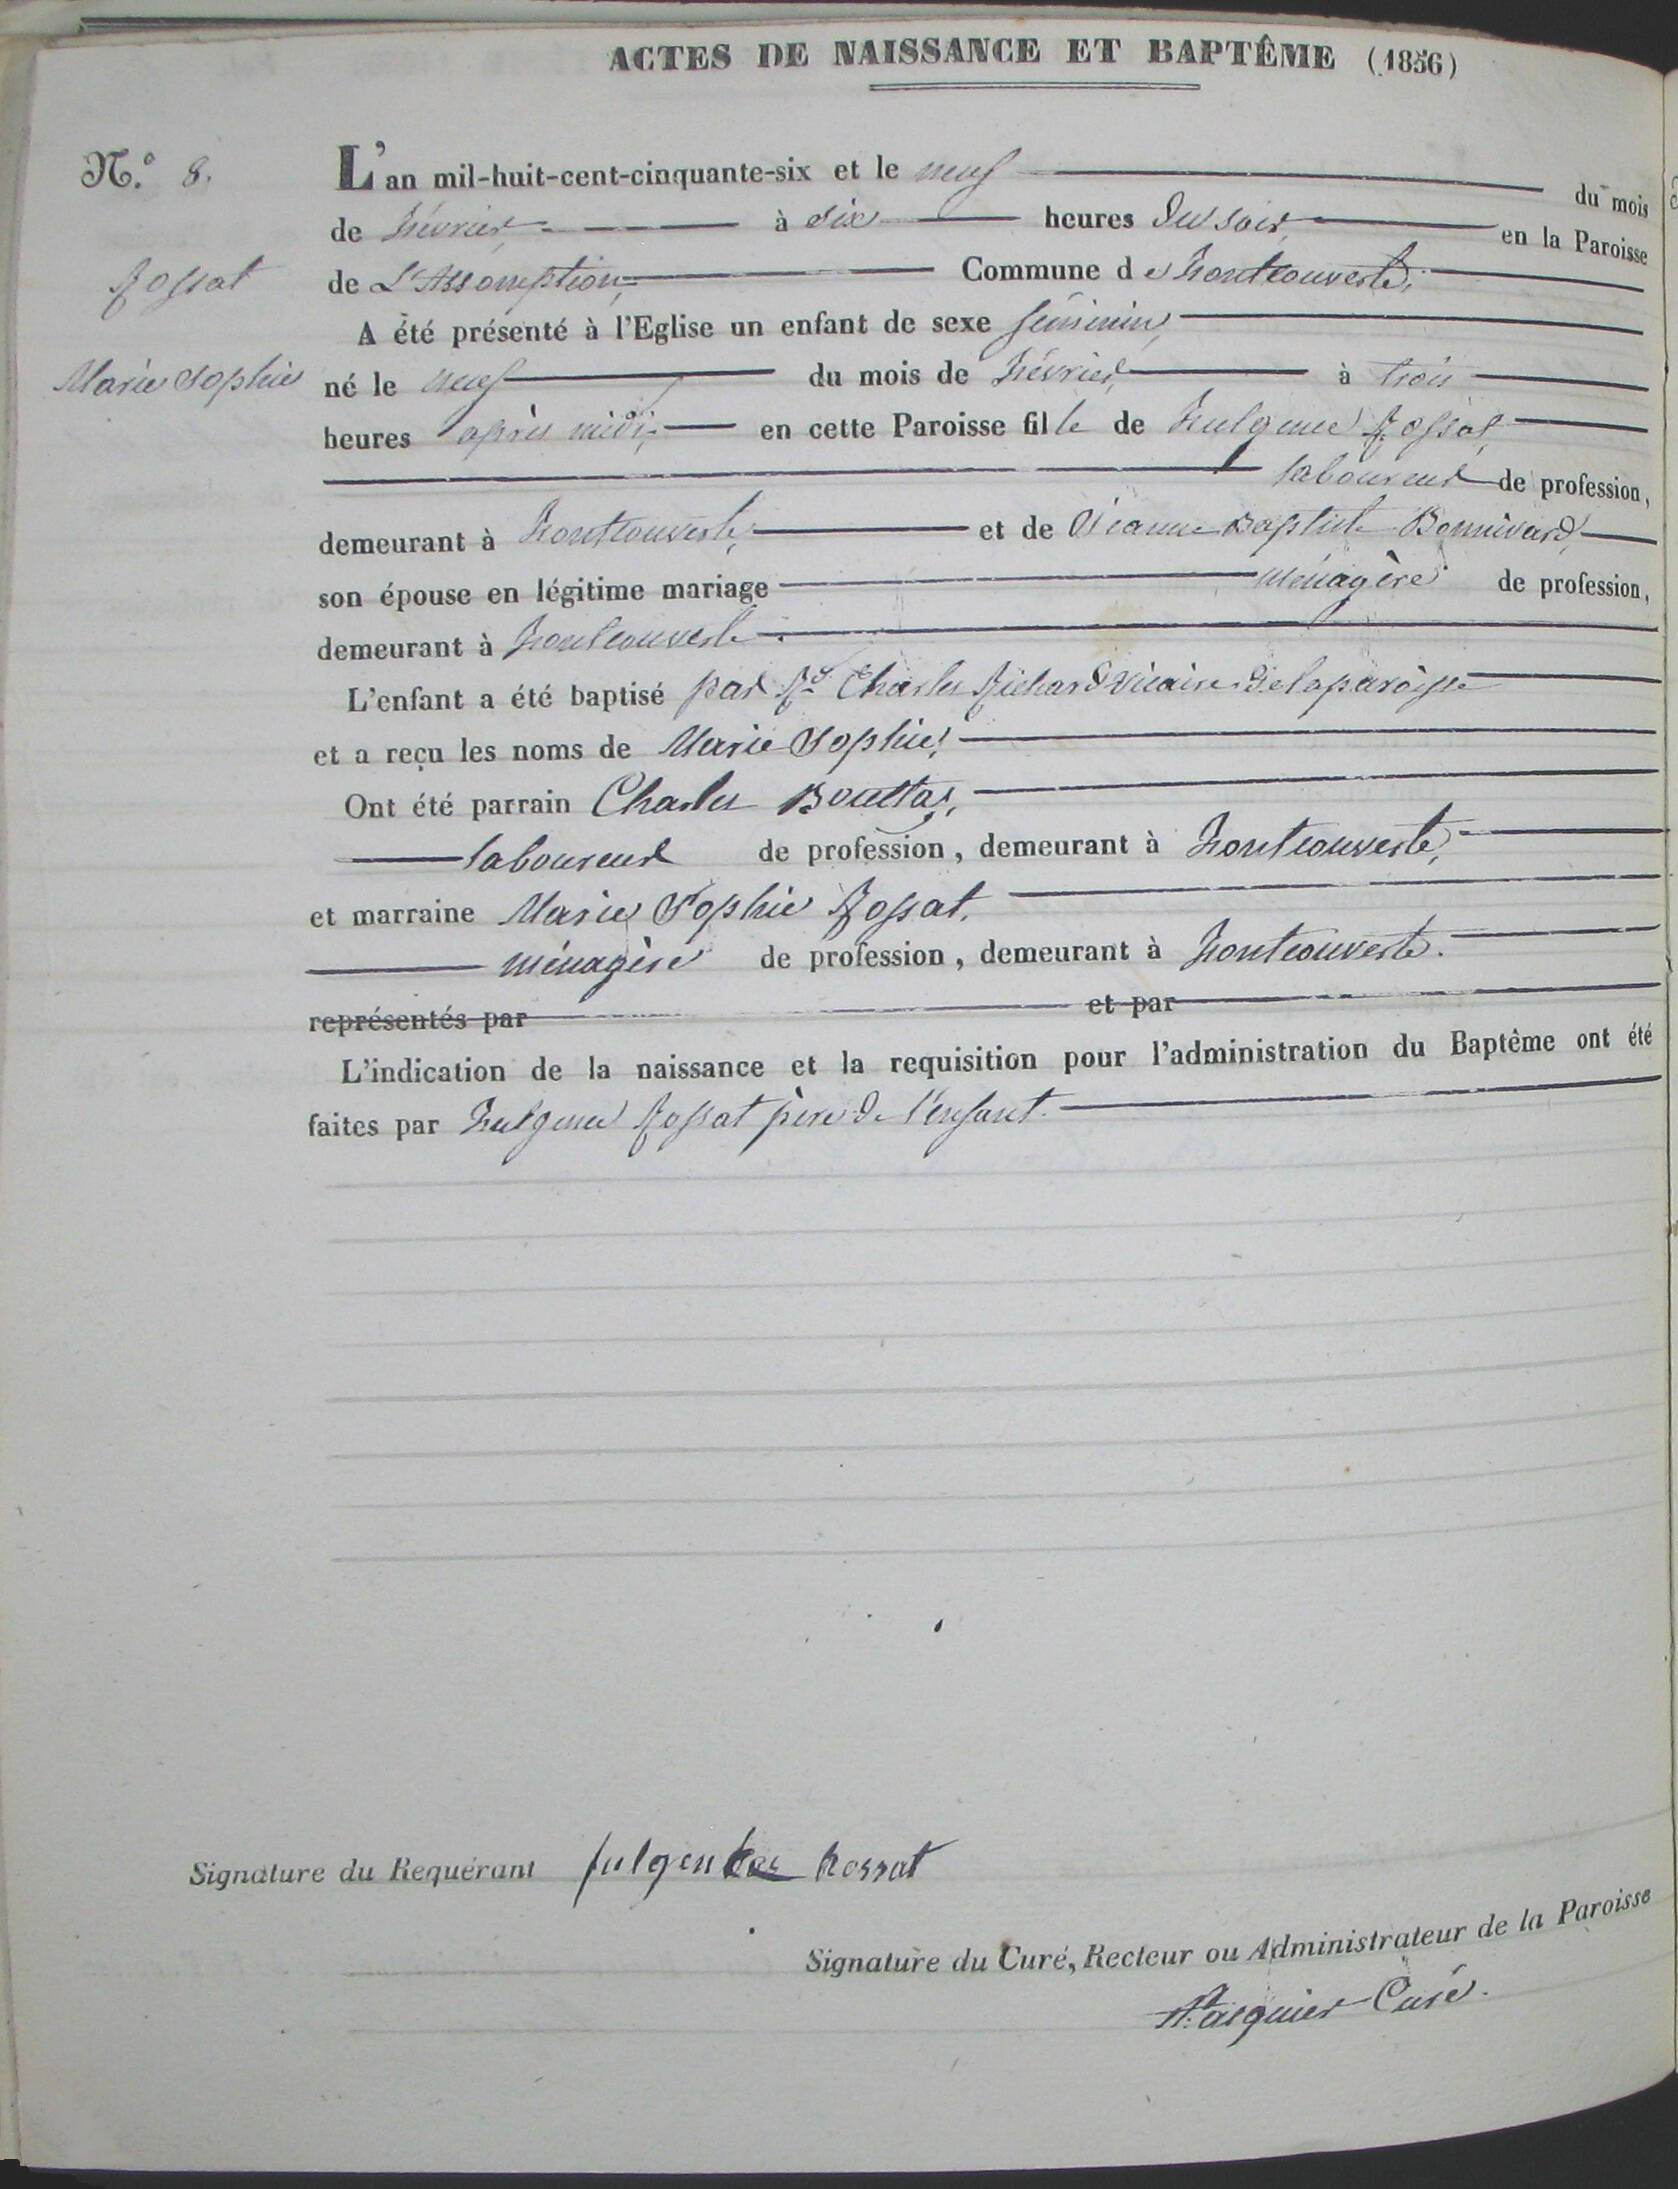 ACTES DE NAISSANCE ET BAPTÊME (1856)
N.º 8.
Rossat
Marie Sophie
L'an mil-huit-cent-cinquante-six et le neuf du mois
de février à six heures du soir en la Paroisse
de L'Assomption, Commune de Montcouverte,
A été présenté à l'Eglise un enfant de sexe féminin,
né le neuf du mois de février à trois
heures après midi, en cette Paroisse fille de Fulgence Rossat,
laboureur de profession,
demeurant à Montcouverte, et de Jeanne Baptiste Bonnivard,
son épouse en légitime mariage ménagère de profession,
demeurant à Montcouverte.
L'enfant a été baptisé par Rd. Charles Richard vicaire de la paroisse
et a reçu les noms de Marie Sophie,
Ont été parrain Charles
laboureur de profession, demeurant à Montcouverte,
et marraine Marie Sophie Rossat,
ménagère de profession, demeurant à Montcouverte.
représentés par et par
L'indication de la naissance et la requisition pour l'administration du Baptême ont été
faites par Fulgence Rossat père de l'enfant.
Signature du Requérant fulgence Rossat
Signature du Curé, Recteur ou Administrateur de la Paroisse
Pasquier Curé.